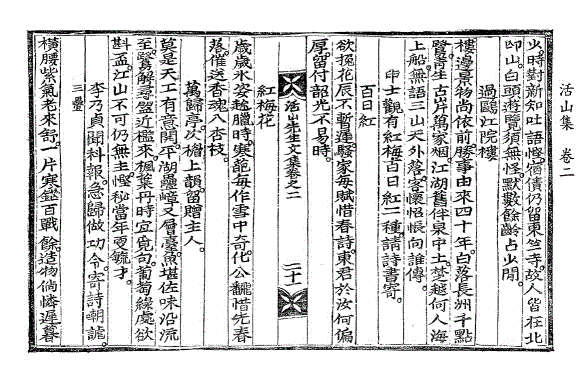 活山集 卷二
少。時對新知吐語慳。宿債仍留東竺寺。故人皆在北
邙山。白頭遊覽須無怪。默數餘齡占少閒。
過鷗江院樓
樓邊景物尚依前。勝事由來四十年。白落長洲千點
鷺。靑生古岸萬家烟。江湖舊伴泉中土。楚越何人海
上船。無語三山天外落。客懷怊悵向誰傳。
印士觀有紅梅百日紅二種。請詩書寄。
百日紅
欲挽花辰不暫遲。騷家每賦惜春詩。東君於汝何偏
厚。留付韶光不易時。
活山先生文集卷之二
二十一
紅梅花
歲歲氷姿趁臘時。寒葩每作雪中奇。化公翻惜先春
落。催送香魂入杏枝。
萬歸亭。次檐上韻。留贈主人。
莫是天工有意開。平湖疊嶂又層臺。魚堪佐味沿流
至。鷺解尋盟近檻來。楓葉丹時宜覓句。葡萄綠處欲
斟盃。江山不可仍無主。慳秘當年更毓才。
李乃貞聞科報。急歸做功令。寄詩嘲謔。
三疊
橫腰紫氣老來舒。一片寒鋩百戰餘。造物倘憐遲暮